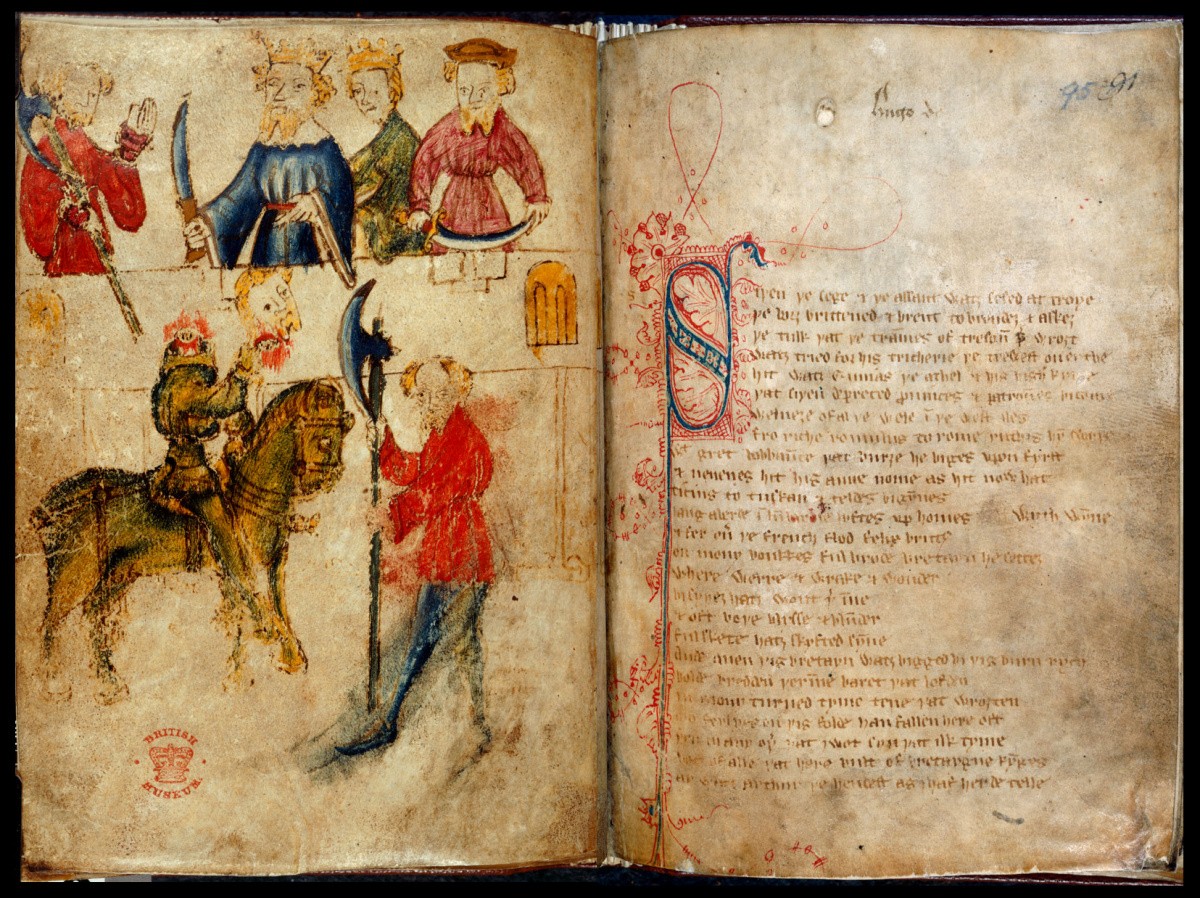 BRITISH
MUSEUM
Hugo d
95 91
Siþen þe sege & þe assaut watz sesed at troye
þe borȝ brittened & brent to brondeȝ & askez
þe tulk þat þe trammes of tresoun þer wroȝt
watz tried for his tricherie þe trewest on erthe
hit watz Ennias þe athel & his highe kynde
þat siþen depreced prouinces & patrounes bicome
welneȝe of al þe wele in þe west iles
fro riche romulus to rome ricchis hym swyþe
gret bobbaunce þat burȝe he biges vpon fyrst
& neuenes hit his aune nome as hit now hat
ticius to tuskan & teldes bigynnes
langaberde in lumbardie lyftes vp homes
& fer ouer þe french flod felix brutus
on mony bonkkes ful brode bretayn he settez
wyth wynne
where werre & wrake & wonder
bi syþez hatz wont þer inne
& oft boþe blysse & blunder
ful skete hatz skyfted synne
Ande quen þis bretayn watz bigged bi þis burn rych
bolde bredden þerinne baret þat lofden
in mony turned tyme tene þat wroȝten
mo ferlyes on þis folde han fallen here oft
þen in any oþer þat I wot syn þat ilk tyme
bot of alle þat here bult of bretaygne kynges
ay watz arthur þe hendest as I haf herde telle